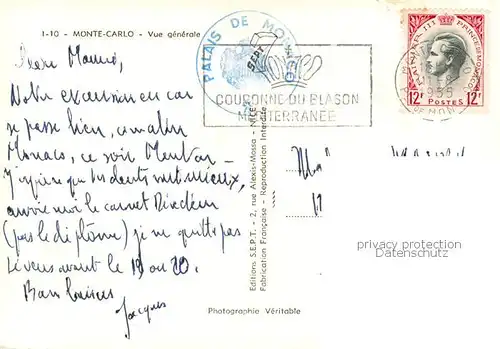 1-10 - MONTE-CARLO - Vue générale
PALAIS DE MONACO
SEPT
COURONNE DU BLASON
MEDITERRANÉE
RAINIER III PRINCE DE MONACO
1955
12F POSTES 12F
Notre excursion en car
se passe bien, ce matin
Monaco, ce soir Menton -
J'espère que tes dents vont mieux,
envoie moi le carnet
(pas le diplôme) je ne quitte pas
avant le 19 ou 20.
Bons baisers
Jacques
Editions S.E.P.T. - 2, rue Alexis-Mossa - NICE
Fabrication Française - Reproduction Interdite
privacy protection
Datenschutz
Photographie Véritable